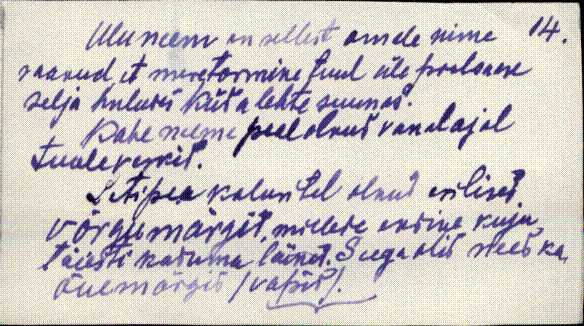 14.
Uluneem on sellest omale nime
saanud, et meretormine tuul üle poolsaare
selja huluses Küsalehte suunas.
Kahe neeme peal olnud vanalajal
tuulevesket.
Letipea kaluritel olnud erilised
võrgumärgid, millede endine kuju
täiesti kaduma läinud. Seega olid need ka
õuemärgid (vapid).